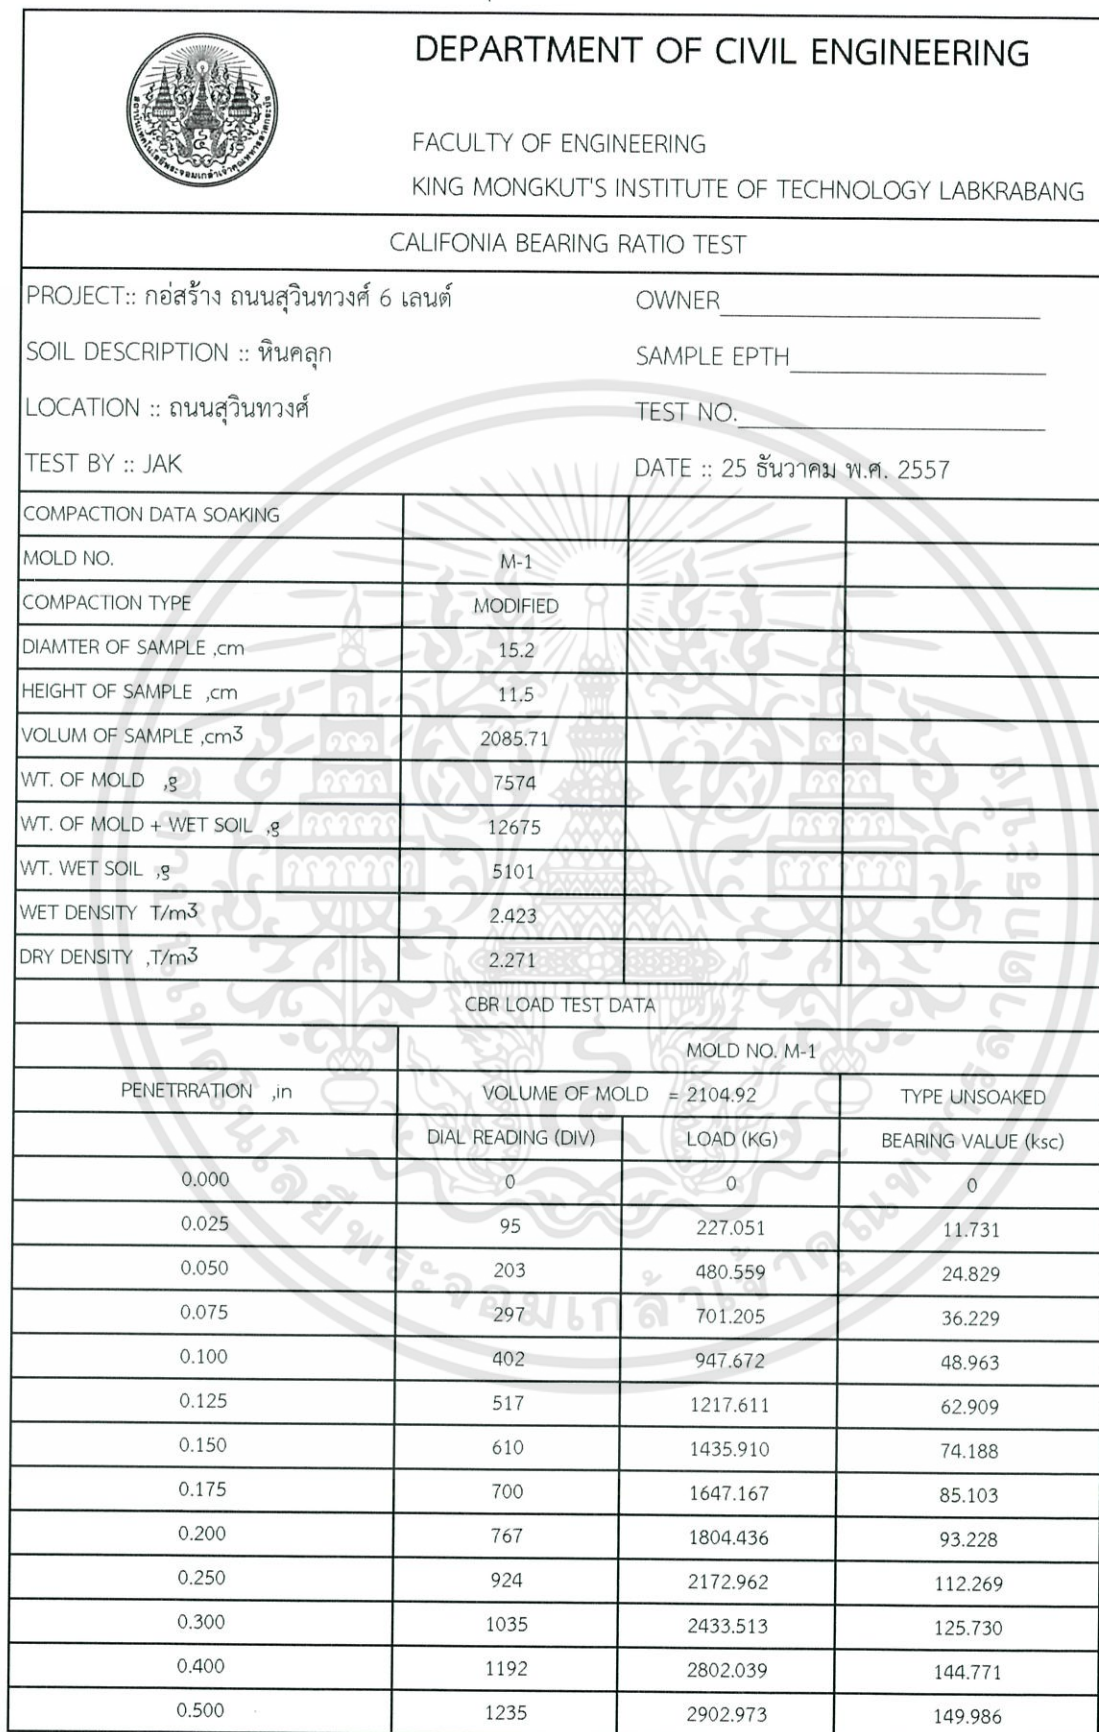 DEPARTMENT OF CIVIL ENGINEERING
FACULTY OF ENGINEERING
KING MONGKUT'S INSTITUTE OF TECHNOLOGY LABKRABANG
CALIFONIA BEARING RATIO TEST
PROJECT:: กอ่สร้าง ถนนสุวินทวงศ์ 6 เลนต์ OWNER
SOIL DESCRIPTION :: หินคลุก SAMPLE EPTH
LOCATION :: ถนนสุวินทวงศ์ TEST NO.
TEST BY :: JAK DATE :: 25 ธันวาคม พ.ศ. 2557
COMPACTION DATA SOAKING
MOLD NO. M-1
COMPACTION TYPE MODIFIED
DIAMTER OF SAMPLE ,cm 15.2
HEIGHT OF SAMPLE ,cm 11.5
VOLUM OF SAMPLE ,cm3 2085.71
WT. OF MOLD ,g 7574
WT. OF MOLD + WET SOIL ,g 12675
WT. WET SOIL ,g 5101
WET DENSITY T/m3 2.423
DRY DENSITY ,T/m3 2.271
CBR LOAD TEST DATA
MOLD NO. M-1
PENETRRATION ,in VOLUME OF MOLD = 2104.92 TYPE UNSOAKED
DIAL READING (DIV) LOAD (KG) BEARING VALUE (ksc)
0.000 0 0 0
0.025 95 227.051 11.731
0.050 203 480.559 24.829
0.075 297 701.205 36.229
0.100 402 947.672 48.963
0.125 517 1217.611 62.909
0.150 610 1435.910 74.188
0.175 700 1647.167 85.103
0.200 767 1804.436 93.228
0.250 924 2172.962 112.269
0.300 1035 2433.513 125.730
0.400 1192 2802.039 144.771
0.500 1235 2902.973 149.986
สถาบันเทคโนโลยีพระจอมเกล้าเจ้าคุณทหารลาดกระบัง